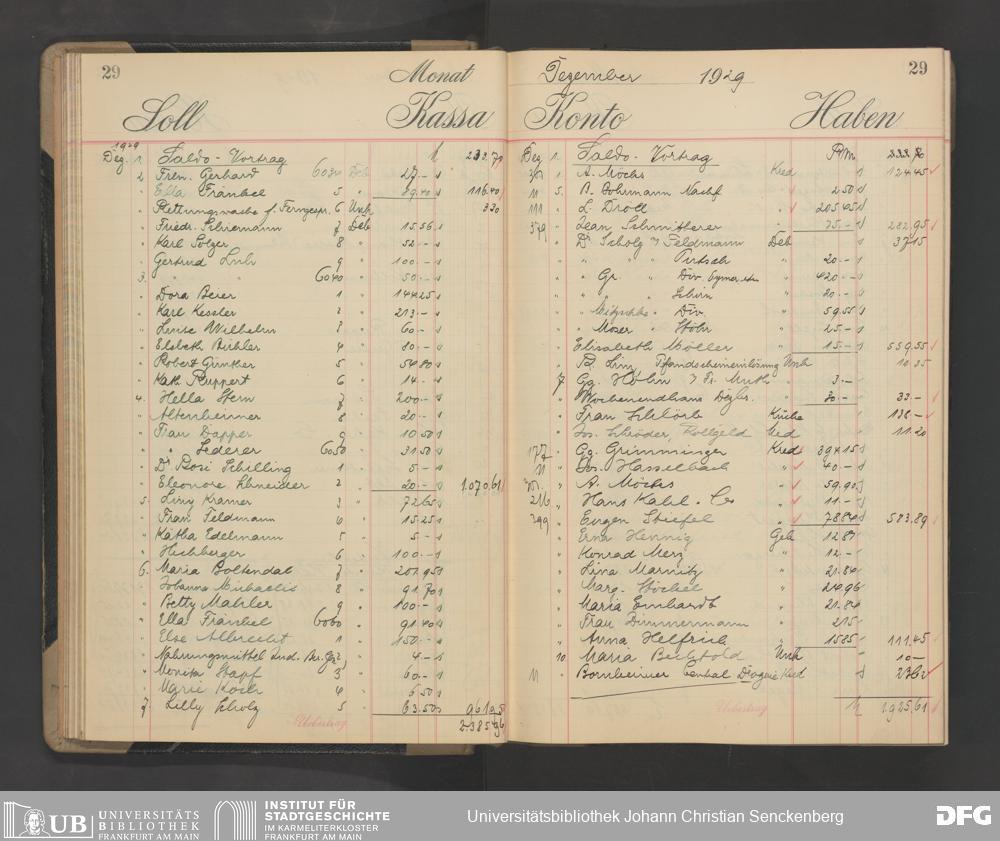 29 Monat
Soll Kassa
1929
Dez. 1. Saldo-Vortrag 232.79
2. Fren. Gerhard 6034 Deb 27.-
" Ella Fränkel 5 " 89.40 116.40
" Rettungswache f. Ferngespr. 6 Unk 3 30
" Friedr. Schiemann 7 Deb 15.56
" Karl Solzer 8 " 52.-
" Gertrud Luh 9 " 100.-
3. " " 6040 " 50.-
" Dora Beier 1 " 144.25
" Karl Kessler 2 " 213.-
" Luise Wilhelm 3 " 60.-
" Elsbeth Bühler 4 " 10.-
" Robert Günther 5 " 54.80
" Kath. Ruppert 6 " 14.-
4. Hella Stern 7 " 200.-
" Altenheimer 8 " 20.-
" Frau Dapper 9 " 10.50
" " Lederer 6050 " 31.50
" Dr. Rosi Schilling 1 " 5.-
" Eleonore Schneider 2 " 20.- 1.070.61
5. Liny Kramer 3 " 72.65
" Frau Feldmann 4 " 15.25
" Kätha Edelmann 5 " 5.-
" Hichberger 6 " 100.-
6. Maria Boltendal 7 " 201.95
" Johanna Michaelis 8 " 91.70
" Betty Mahler 9 " 100.-
" Ella Fränkel 6060 " 91.40
" Else Albrecht 1 " 150.-
" Nahrungsmittel Ind. Ber. Ge. 2 " 4.-
" Monika Stapf 3 " 60.-
" Marie Koch 4 " 6.50
7. Lilly Scholz 5 " 63.50 961.95
Uebertrag 2.385.96
Dezember 1929 29
Konto Haben
Dez 1. Saldo-Vortrag RM.
" A. Möchs Kred 124.45
11 5. B. Dohrmann Nachf " 250
111 " L. Dröll " 205.45
379 " Jean Schmitterer " 25.- 282.95
" Dr. Scholz & Feldmann Deb 37.15
" " " " Putsch " 20.-
" " Gr. " Div. " 420.-
" " " " Schirn " 20.-
" " Nitzschke " Div. " 59.55
" " Moser " Stöhr " 25.-
" Elisabeth Möller " 15.- 559.55
" B. Linz, Pfandscheineinlösung Unk 10.35
7. Gg. Hohn & Fr. Muth " 3.-
" Wochenendhaus Dezbr. " 30.- 33.-
" Frau Schlörb Küche 138.-
" Jos. Schröder, Rollgeld Ged 11.20
177 " Gg. Grimminger Kred 394.15
11 " Jos. Hasselbach " 40.-
301. " A. Möchs " 59.90
216 " Hans Kahl & Co " 11.-
399 " Eugen Stiefel " 78.84 583.89
" Erna Hennig Geh 12.87
" Konrad Merz " 12.-
" Lina Marnitz " 21.84
" Marg. Höckel " 24.96
" Maria Emhardt " 21.84
" Frau Dimmermann " 2.15
" Anna Helfrich " 15.85 111.45
10. Maria Bechtold Unk 10.-
11 " Bornheimer Central Drogerie Kred 23.62
Uebertrag 1925.61
UB UNIVERSITÄTS
BIBLIOTHEK
FRANKFURT AM MAIN
INSTITUT FÜR
STADTGESCHICHTE
IM KARMELITERKLOSTER
FRANKFURT AM MAIN
Universitätsbibliothek Johann Christian Senckenberg
DFG